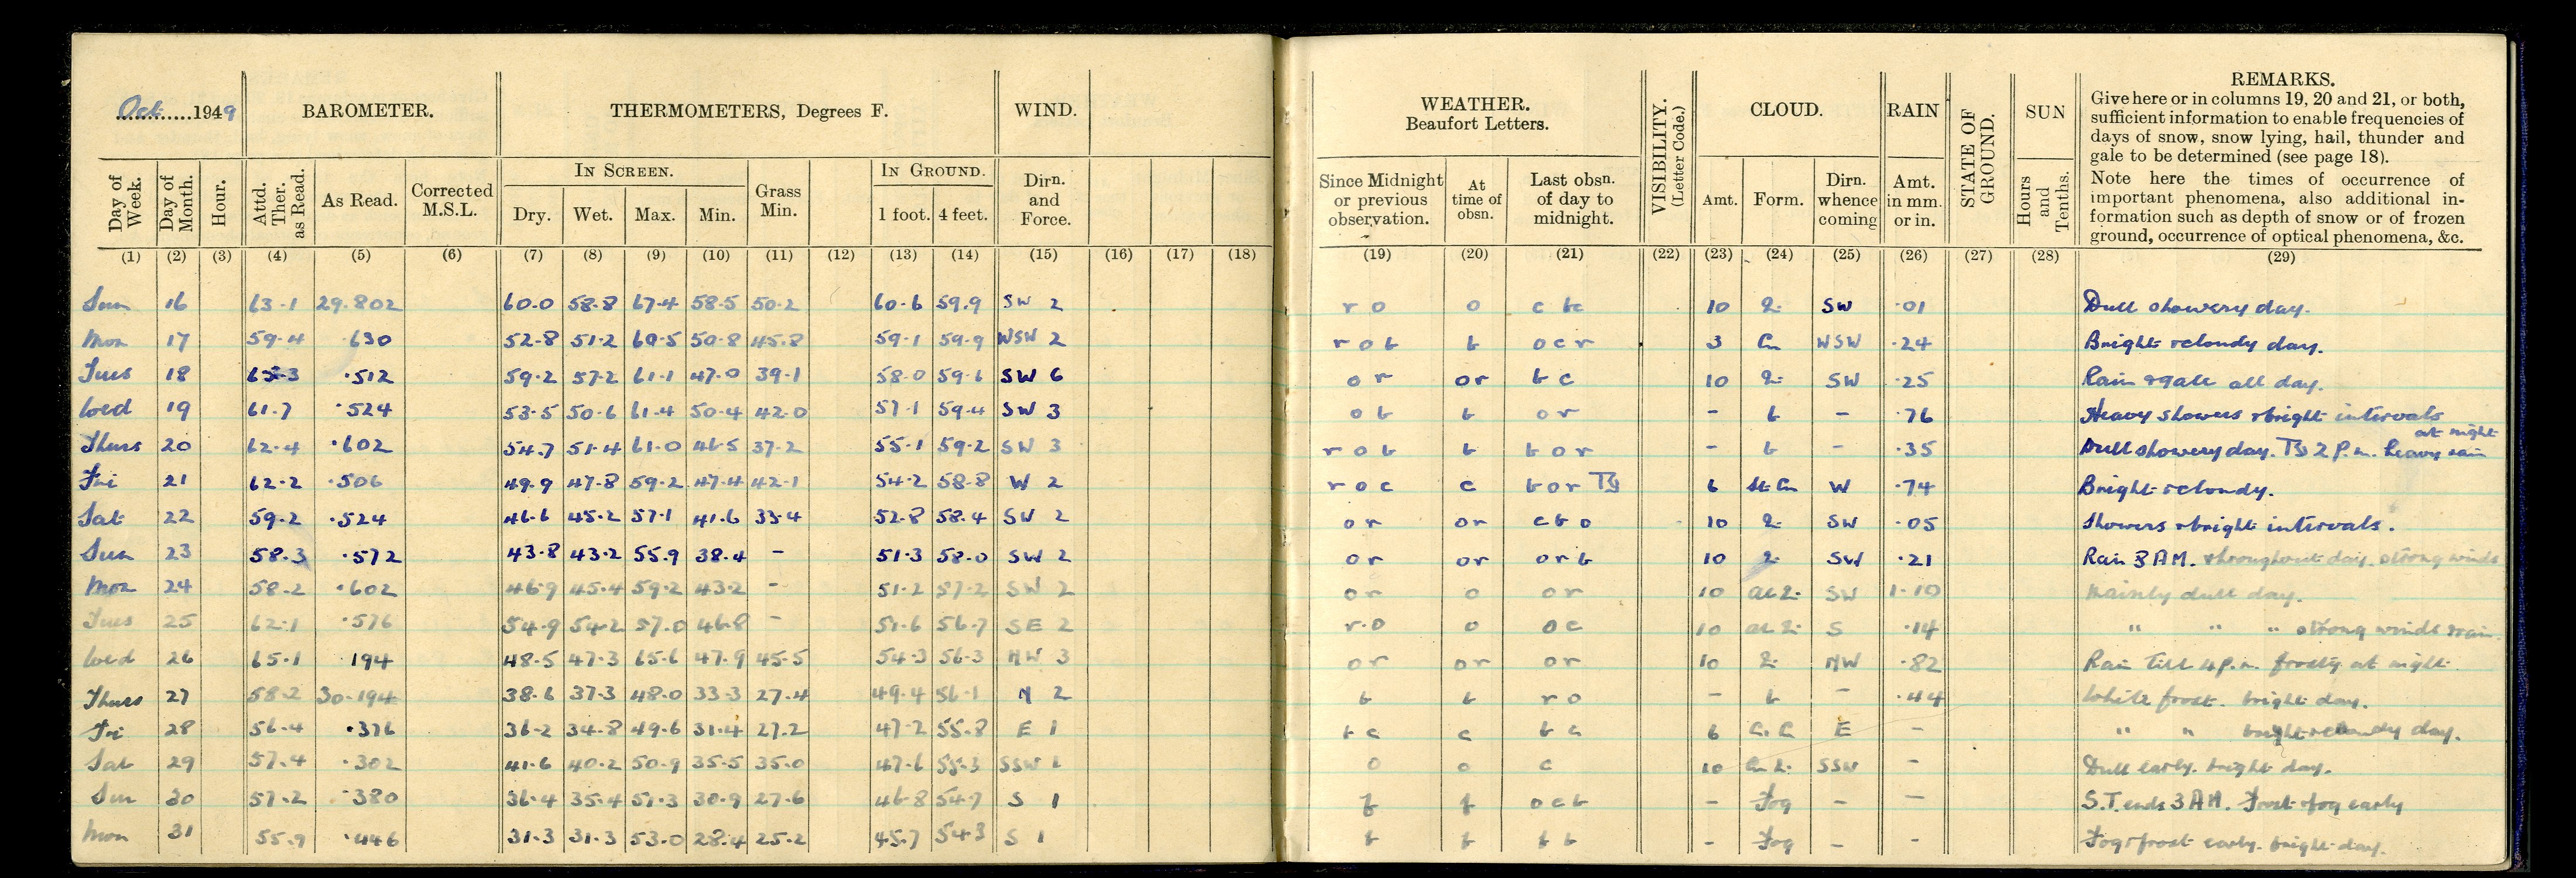 Oct 1949 BAROMETER. THERMOMETERS, Degrees F. WIND. WEATHER. Beaufort Letters. VISIBILITY. (Letter Code.) CLOUD. RAIN STATE OF GROUND. SUN REMARKS.
Give here or in columns 19, 20 and 21, or both,
sufficient information to enable frequencies of
days of snow, snow lying, hail, thunder and
gale to be determined (see page 18).
Note here the times of occurrence of
important phenomena, also additional in-
formation such as depth of snow or of frozen
ground, occurrence of optical phenomena, &c.
Day of Week. Day of Month. Hour. Attd. Ther. as Read. As Read. Corrected M.S.L. IN SCREEN. Dry. Wet. Max. Min. Grass Min. IN GROUND. 1 foot. 4 feet. Dirn. and Force. Since Midnight or previous observation. At time of obsn. Last obsn. of day to midnight. Amt. Form. Dirn. whence coming Amt. in mm. or in. Hours and Tenths.
(1) (2) (3) (4) (5) (6) (7) (8) (9) (10) (11) (12) (13) (14) (15) (16) (17) (18) (19) (20) (21) (22) (23) (24) (25) (26) (27) (28) (29)
Sun 16 63.1 29.802 60.0 58.8 67.4 58.5 50.2 60.6 59.9 SW 2 r o o c bc 10 SW .01 Dull showery day.
Mon 17 59.4 .630 52.8 51.2 60.5 50.8 45.8 59.1 59.9 WSW 2 r o b b o c r 3 Cu WSW .24 Bright & cloudy day.
Tues 18 .512 59.2 57.2 61.1 47.0 39.1 58.0 59.6 SW 6 o r or b c 10 SW .25 Rain & gale all day.
Wed 19 61.7 .524 53.5 50.6 61.4 50.4 42.0 57.1 59.4 SW 3 o b b o r - b - .76 Heavy showers & bright intervals
Thurs 20 62.4 .602 54.7 51.4 61.0 46.5 37.2 55.1 59.2 SW 3 r o b b b o r - b - .35 Dull showery day. TS 2 P.m. heavy rain at night
Fri 21 62.2 .506 49.9 47.8 59.2 47.4 42.1 54.2 58.8 W 2 r o c c b o r TS 6 St Cu W .74 Bright & cloudy.
Sat 22 59.2 .524 46.6 45.2 57.1 41.6 33.4 52.8 58.4 SW 2 o r or c b o 10 SW .05 Showers & bright intervals.
Sun 23 58.3 .572 43.8 43.2 55.9 38.4 - 51.3 58.0 SW 2 o r or o r b 10 SW .21 Rain 3 AM. & throughout day. strong winds
Mon 24 58.2 .602 46.9 45.4 59.2 43.2 - 51.2 57.2 SW 2 o r o o r 10 SW 1.10 Mainly dull day.
Tues 25 62.1 .576 54.9 54.2 57.0 46.8 - 51.6 56.7 SE 2 r.o o o c 10 S .14 " " " strong winds & rain.
Wed 26 65.1 194 48.5 47.3 65.6 47.9 45.5 54.3 56.3 NW 3 o r or o r 10 NW .82 Rain till 4 P.m. frosty at night.
Thurs 27 58.2 30.194 38.6 37.3 48.0 33.3 27.4 49.4 56.1 N 2 b b r o - b - .44 White frost. bright day.
Fri 28 56.4 .376 36.2 34.8 49.6 31.4 27.2 47.2 55.8 E 1 b c c b c 6 E - " " bright & cloudy day.
Sat 29 57.4 .302 41.6 40.2 50.9 35.5 35.0 47.6 55.3 SSW 1 o o c 10 SSW - Dull early. bright day.
Sun 30 57.2 .380 36.4 35.4 51.3 30.9 27.6 46.8 54.7 S 1 f f o c b - Fog - - S.T. ends 3 AM. Frost & fog early
Mon 31 55.9 .446 31.3 31.3 53.0 28.4 25.2 45.7 54.3 S 1 f f f b - Fog - - Fog & frost early. bright day.